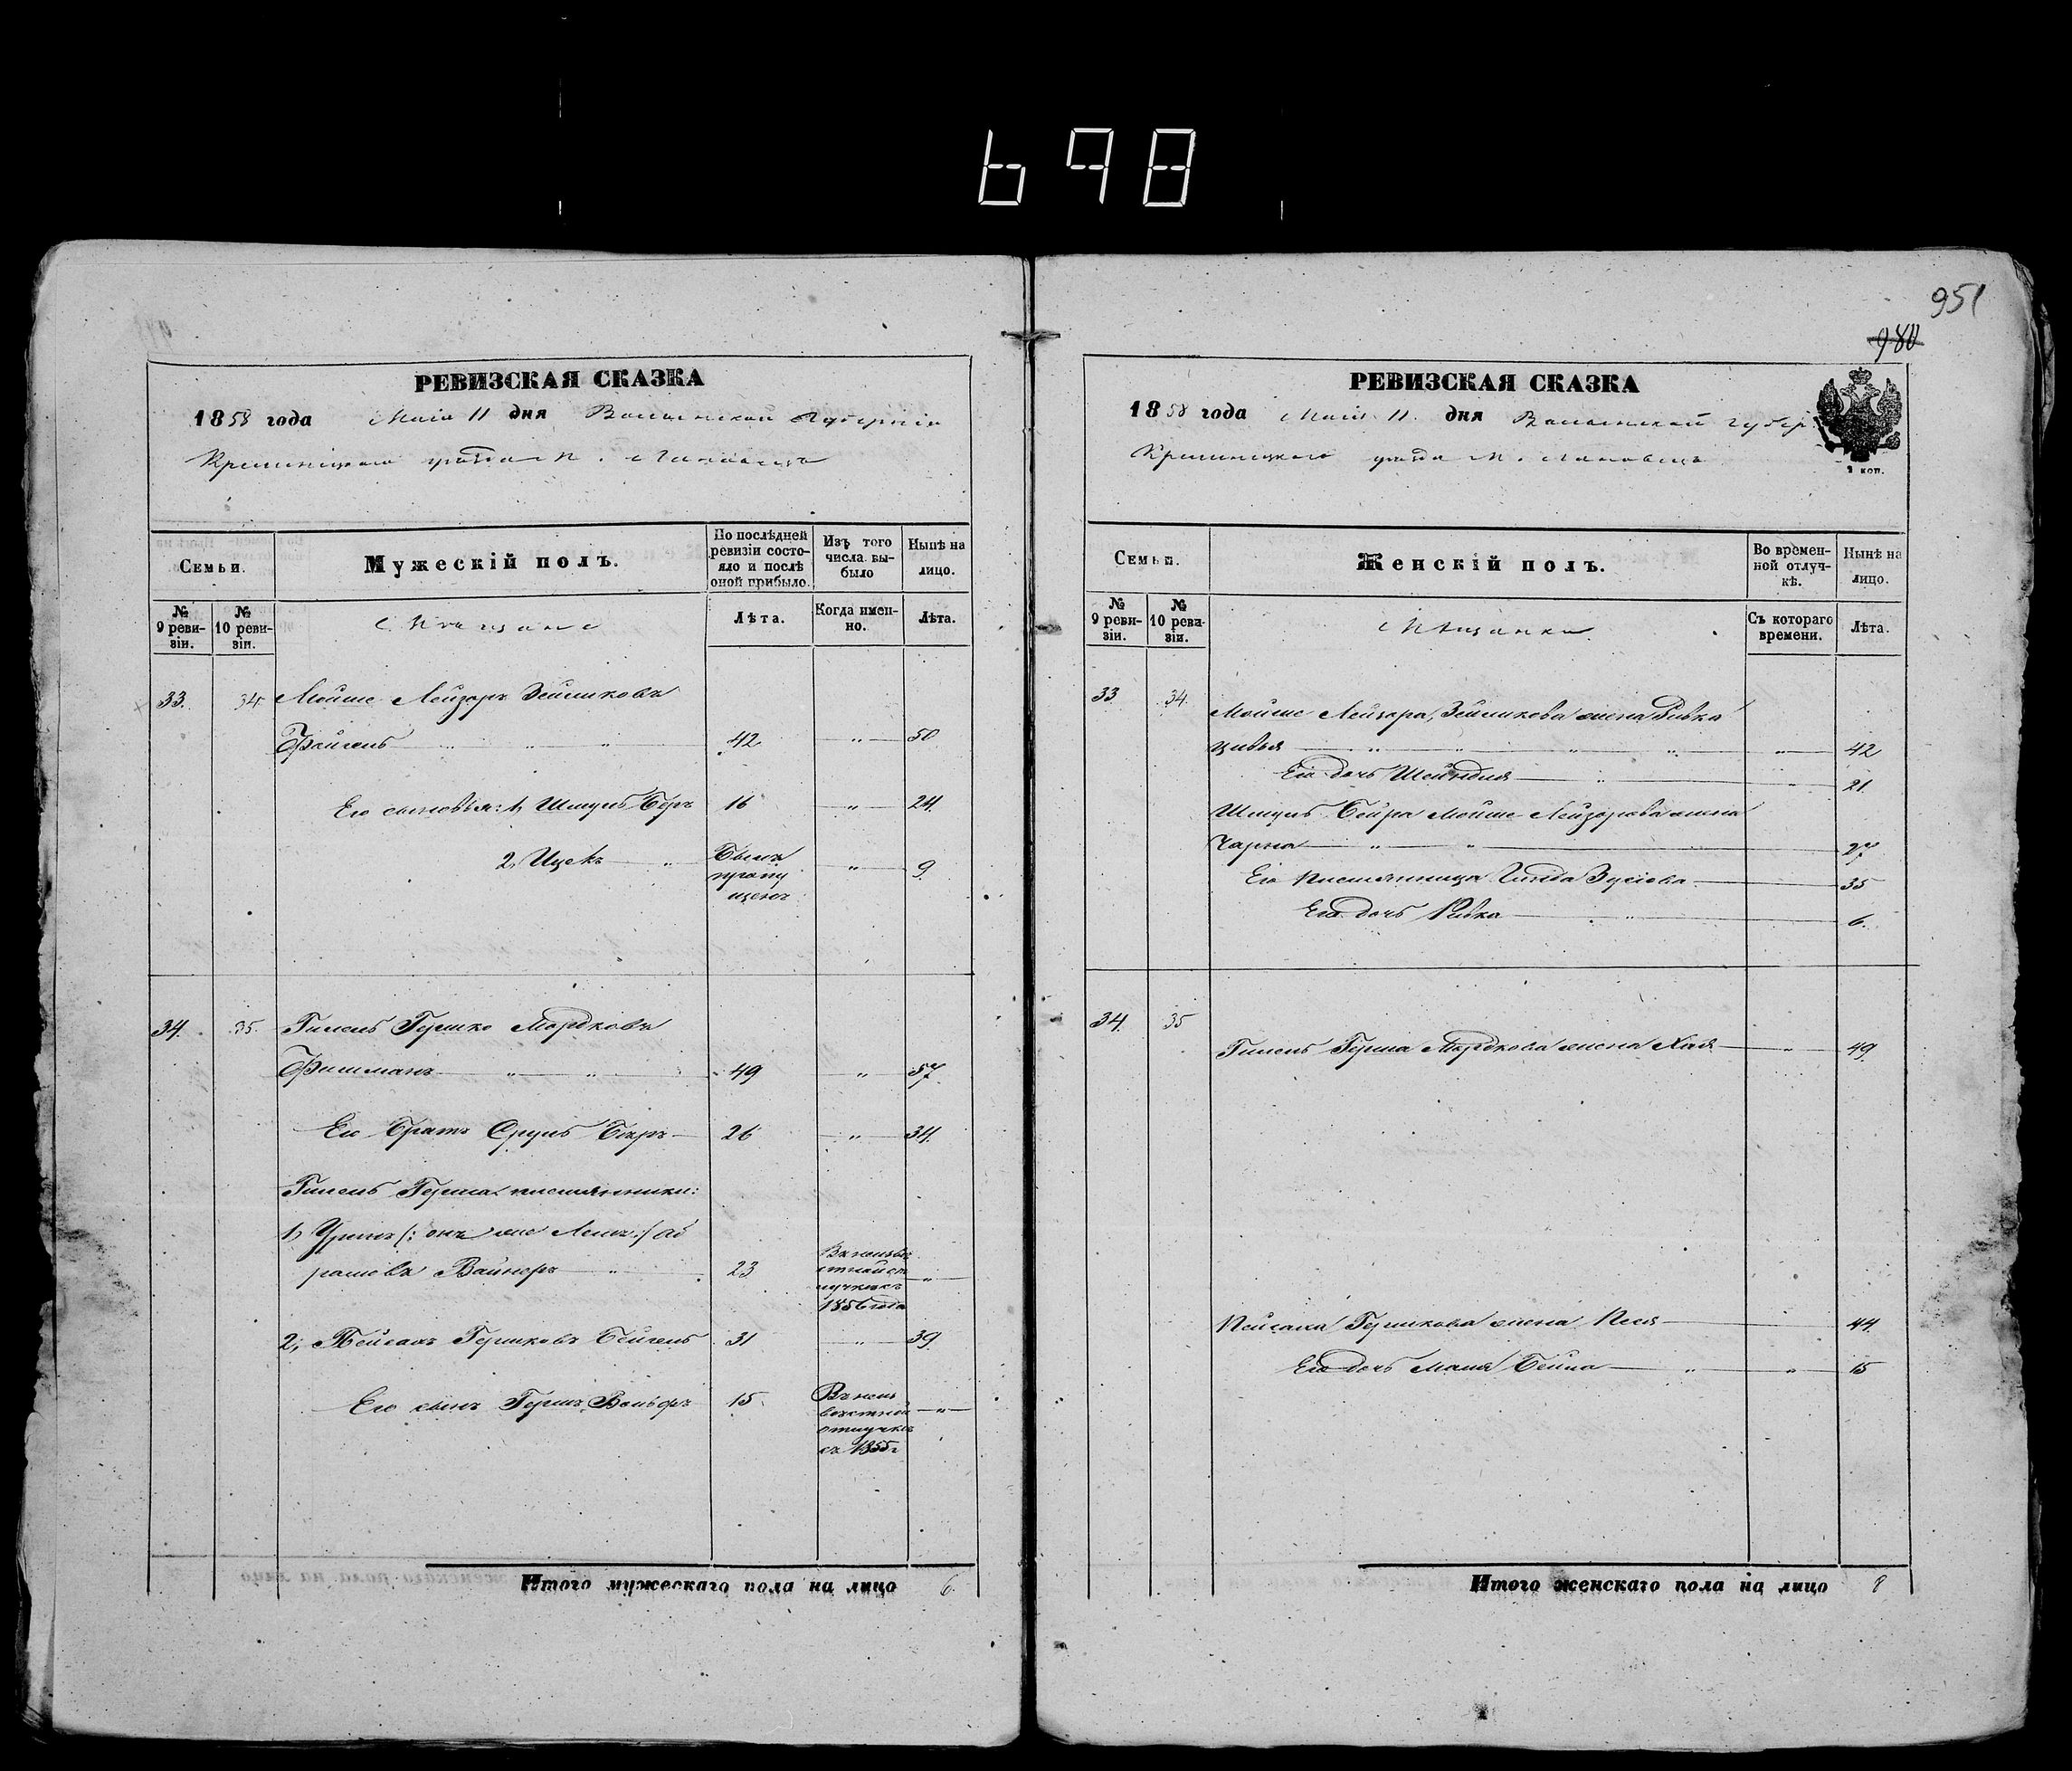 698
951
980
РЕВИЗСКАЯ СКАЗКА
1858 года Маія 11 дня Волынской Губерніи
Кременецкаго уѣзда М. Лановецъ
Семьи.
Мужескій полъ.
По послѣдней ревизіи состояло и послѣ оной прибыло.
Изъ того числа выбыло
Нынѣ на лицо.
№ 9 ревизіи.
№ 10 ревизіи.
Мѣщане
Лѣта.
Когда именно.
Лѣта.
33. 34. Мойше Лейзоръ Зейликовъ
Фейгель 42 50
Его сыновья: 1, Шмуль Беръ 16 24.
2, Ицекъ Былъ пропущенъ 9.
34. 35. Гимель Гершко Мордковъ
Фишманъ 49 57.
Его Братъ Сруль Беръ 26 34.
Гимель Герша племянники:
1, /: онъ же :/ Аб
рамовъ Вайнеръ 23 Въ неизвѣстной отлучкѣ съ 1856 года
2, Пейсахъ Гершковъ Бейгель 31 39.
Его сынъ Гершъ Вольфъ 15. Въ неизвѣстной отлучкѣ съ 1855 г
Итого мужескаго пола на лицо 6.
РЕВИЗСКАЯ СКАЗКА
1858 года Маія 11. дня Волынской губер.
Кременецкаго уѣзда М. Лановецъ
1 коп.
Семьи.
Женскій полъ.
Во временной отлучкѣ.
Нынѣ на лицо.
№ 9 ревизіи.
№ 10 ревизіи.
Мѣщанки
Съ котораго времени.
Лѣта.
33 34. Мойше Лейзора Зейликова жена Ривка
Цивья 42
Его дочь Шейндля 21.
Шмуль Бейра Мойше Лейзорова жена
Чарна 27
Его племянница Гинда Зусіова 35
Его дочь Ривка 6.
34. 35 Гимель Герша Мордкова жена Хая 49.
Пейсаха Гершкова жена Песя 44.
Его дочь Маля Бейла 15
Итого женскаго пола на лицо 8